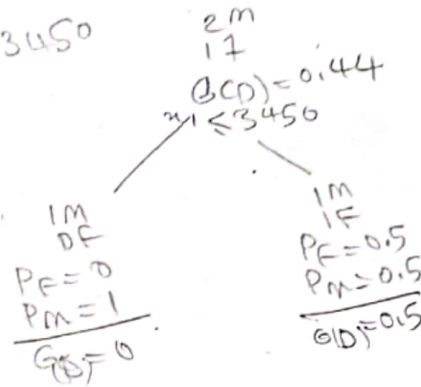 3450
2M
17
G(D)=0.44
x1 ≤3450
1M
0F
PF=0
PM=1
G(D)=0
1M
1F
PF=0.5
PM=0.5
G(D)=0.5